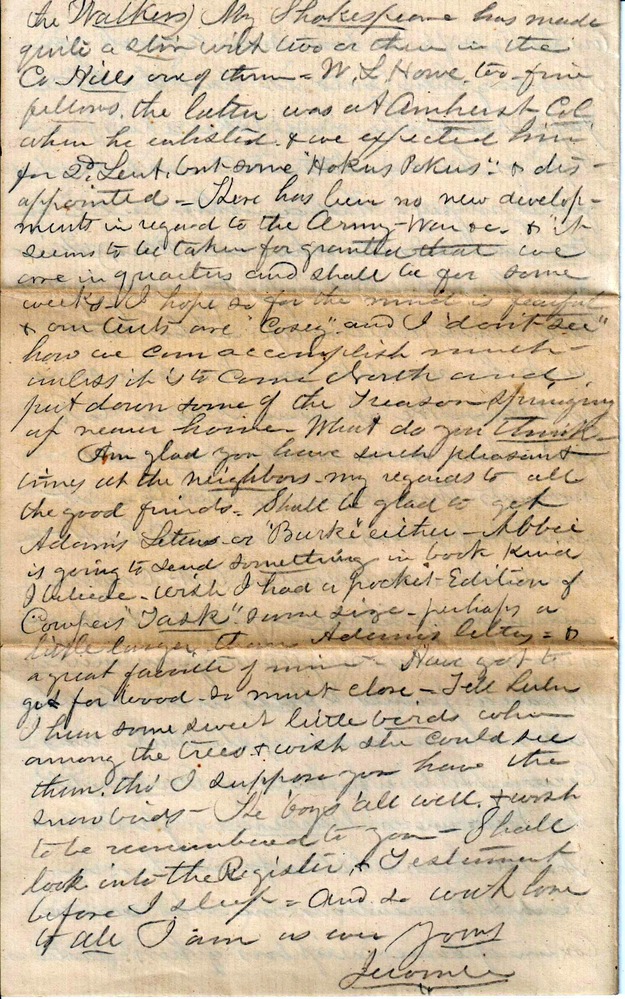 the Walkers) My Shakespeare has made
quite a stir with two or three in the
Co Hills one of them = W. L. Howe, two fine
fellows, the latter was at Amherst Col
when he enlisted & we expected him
for 2d. Leut, but some "Hokus Pokus" & dis-
appointed - There has been no new develop-
ments in regard to the Army - War &c. & it
seems to be taken for granted that we
are in quarters and shall be for some
weeks - I hope so for the mud is fearful
& our tents are "Cosey" and I "don't see"
how we can accomplish much
unless it is to come North and
put down some of the Treason springing
up nearer home - What do you think -
Am glad you have such pleasant
times at the neighbors - my regards to all
the good friends - Shall be glad to get
Adam's Letters or "Burke" either - Abbie
is going to send something in book kind
I believe - wish I had a pocket Edition of
Cowper's "Task" same size - perhaps a
little larger than Adam's letters =
a great favorite of mine - Have got to
get for wood - so must close - Tell Lulu
I hear some sweet little birds when
among the trees & wish she could see
them, tho' I suppose you have the
snow birds - The boys all well, & wish
to be remembered to you - Shall
look into the Register, & Testament
before I sleep = And so with love
to all I am as ever Yours
Jeromie